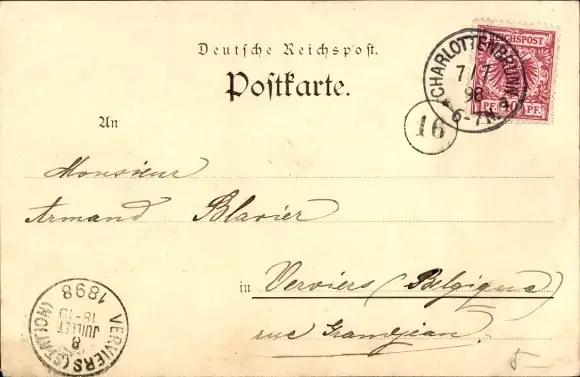 Deutsche Reichspost.
Postkarte.
REICHSPOST
10 PF. 10 PF.
CHARLOTTENBRUNN
7/7
98
6-7N.
16
An
Monsieur
Armand Blavier
in Verviers (Belgique)
rue Grandjean.
VERVIERS (STATION)
8
JUILLET
18-19
1898